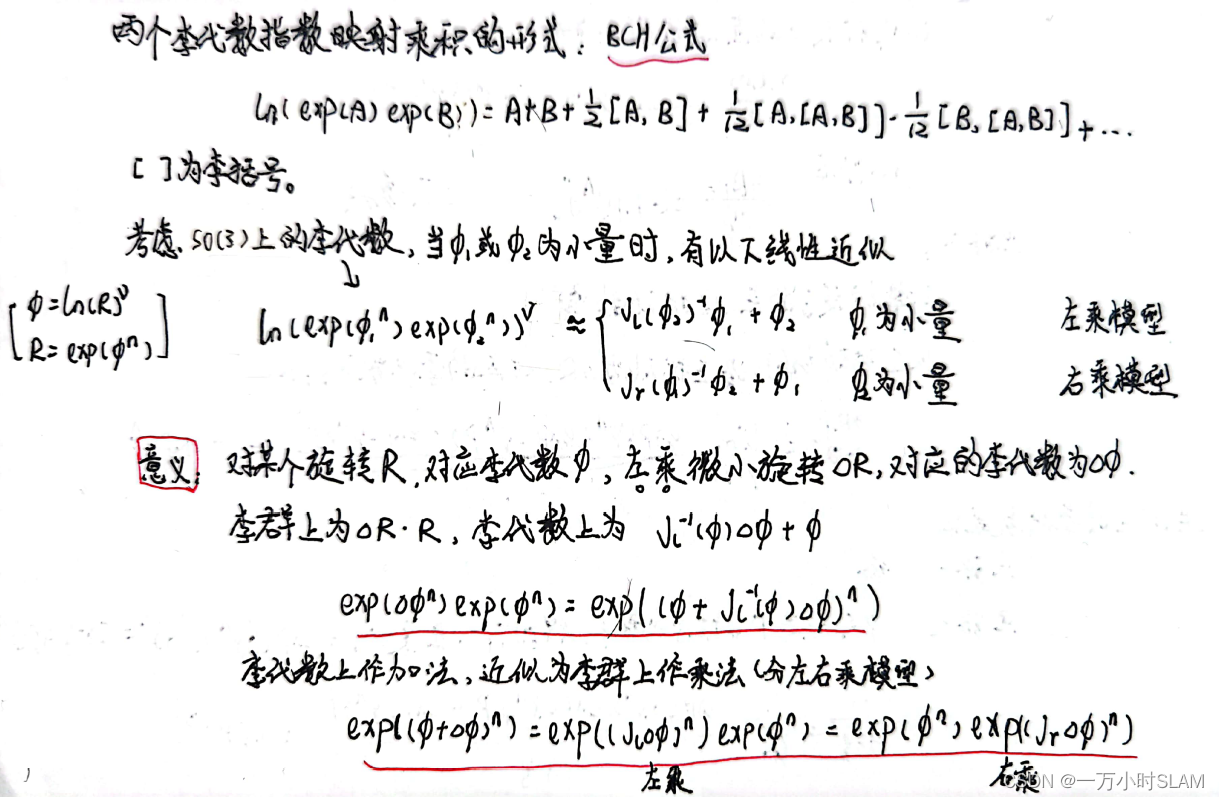 两个李代数指数映射乘积的形式: BCH公式
ln(exp(A)exp(B))=A+B+½[A,B]+1/12[A,[A,B]]-1/12[B,[A,B]]+...
[ ]为李括号。
考虑SO(3)上的李代数,当φ₁或φ₂为小量时,有以下线性近似
↓
[φ=ln(R)^∨
R=exp(φ^∧)]
ln(exp(φ₁^∧)exp(φ₂^∧))^∨ ≈ { J_l(φ₂)⁻¹φ₁+φ₂ φ₁为小量 左乘模型
J_r(φ₁)⁻¹φ₂+φ₁ φ₂为小量 右乘模型
意义: 对某个旋转R,对应李代数φ,左乘微小旋转ΔR,对应的李代数为Δφ.
李群上为ΔR·R,李代数上为 J_l⁻¹(φ)Δφ+φ
exp(Δφ^∧)exp(φ^∧)=exp((φ+J_l⁻¹(φ)Δφ)^∧)
李代数上作加法,近似为李群上作乘法(分左右乘模型)
exp((φ+Δφ)^∧)=exp((J_lΔφ)^∧)exp(φ^∧)=exp(φ^∧)exp((J_rΔφ)^∧)
左乘 右乘
@一万小时SLAM